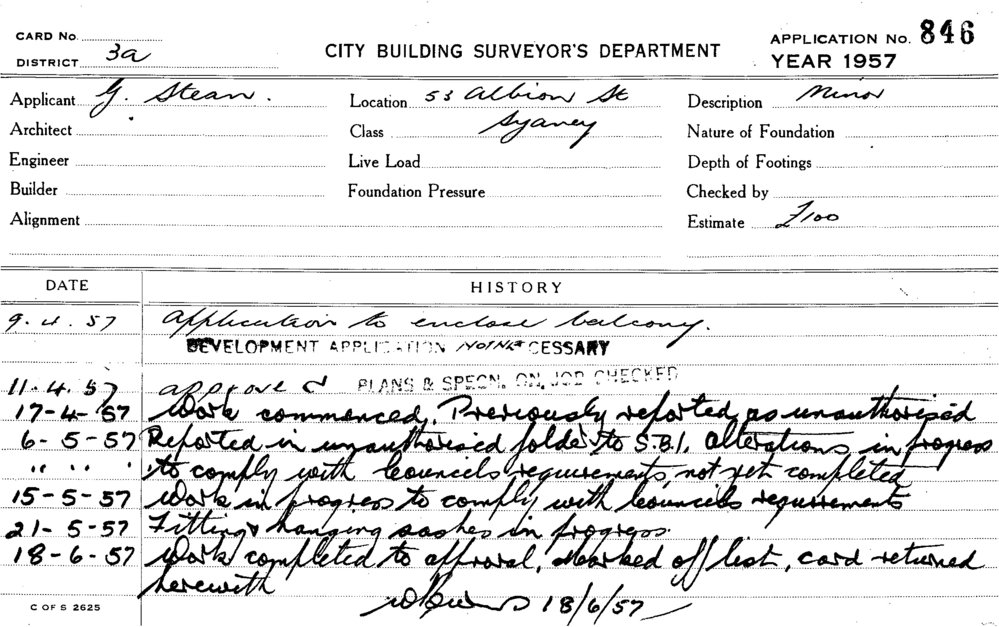 CARD No.
DISTRICT 3a
CITY BUILDING SURVEYOR'S DEPARTMENT
APPLICATION No. 846
YEAR 1957
Applicant G. Stean. Location 53 Albion St Description Minor
Architect Class Sydney Nature of Foundation
Engineer Live Load Depth of Footings
Builder Foundation Pressure Checked by
Alignment Estimate £100
DATE HISTORY
9.4.57 Application to enclose balcony.
DEVELOPMENT APPLICATION NOT NECESSARY
11.4.57 approved PLANS & SPECN. ON JOB CHECKED
17-4-57 Work commenced. Previously reported as unauthorised
6-5-57 Reported in unauthorised folder to S.B.I. alterations in progress
" " " to comply with Councils requirements, not yet completed
15-5-57 Work in progress to comply with Councils requirements
21-5-57 Fitting & hanging sashes in progress.
18-6-57 Work completed to approval, Marked off list, card returned
herewith
18/6/57
C OF S 2625